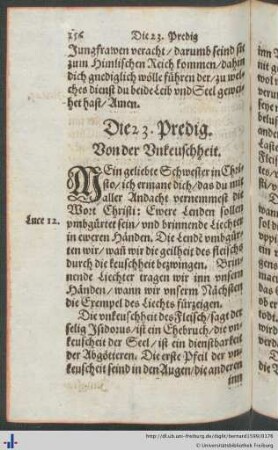 256 Die 23. Predig
Jungkrawen veracht/ darumb seind sie
zum Himlischen Reich kommen/ dahin
dich gnediglich wölle führen der/ zu wel-
ches dienst du beide Leib vnd Seel gewei-
het hast/ Amen.
Die 23. Predig.
Von der Vnkeuschheit.
MEin geliebte Schwester in Chri-
sto/ ich ermane dich/ das du mit
aller Andacht vernemmest die
Luce 12.
Wort Christi: Ewere Lenden sollen
vmbgürtet sein/ vnd brinnende Liechter
in eweren Händen. Die Lendē vmbgür-
ten wir/ wañ wir die geilheit des fleischs
durch die keuschheit bezwingen. Brin-
nende Liechter tragen wir inn vnsern
Händen/ wann wir vnserm Nächsten
die Exempel des Liechts fürzeigen.
Die vnkeuschheit des Fleisch/ sagt der
selig Isidorus/ ist ein Ehebruch/ die vn-
keuscheit der Seel/ ist ein dienstbarkeit
der Abgötteren. Die erste Pfeil der vn-
keuscheit seind in den Augen/ die anderen
inn
http://dl.ub.uni-freiburg.de/diglit/bernard1599/0178
© Universitätsbibliothek Freiburg